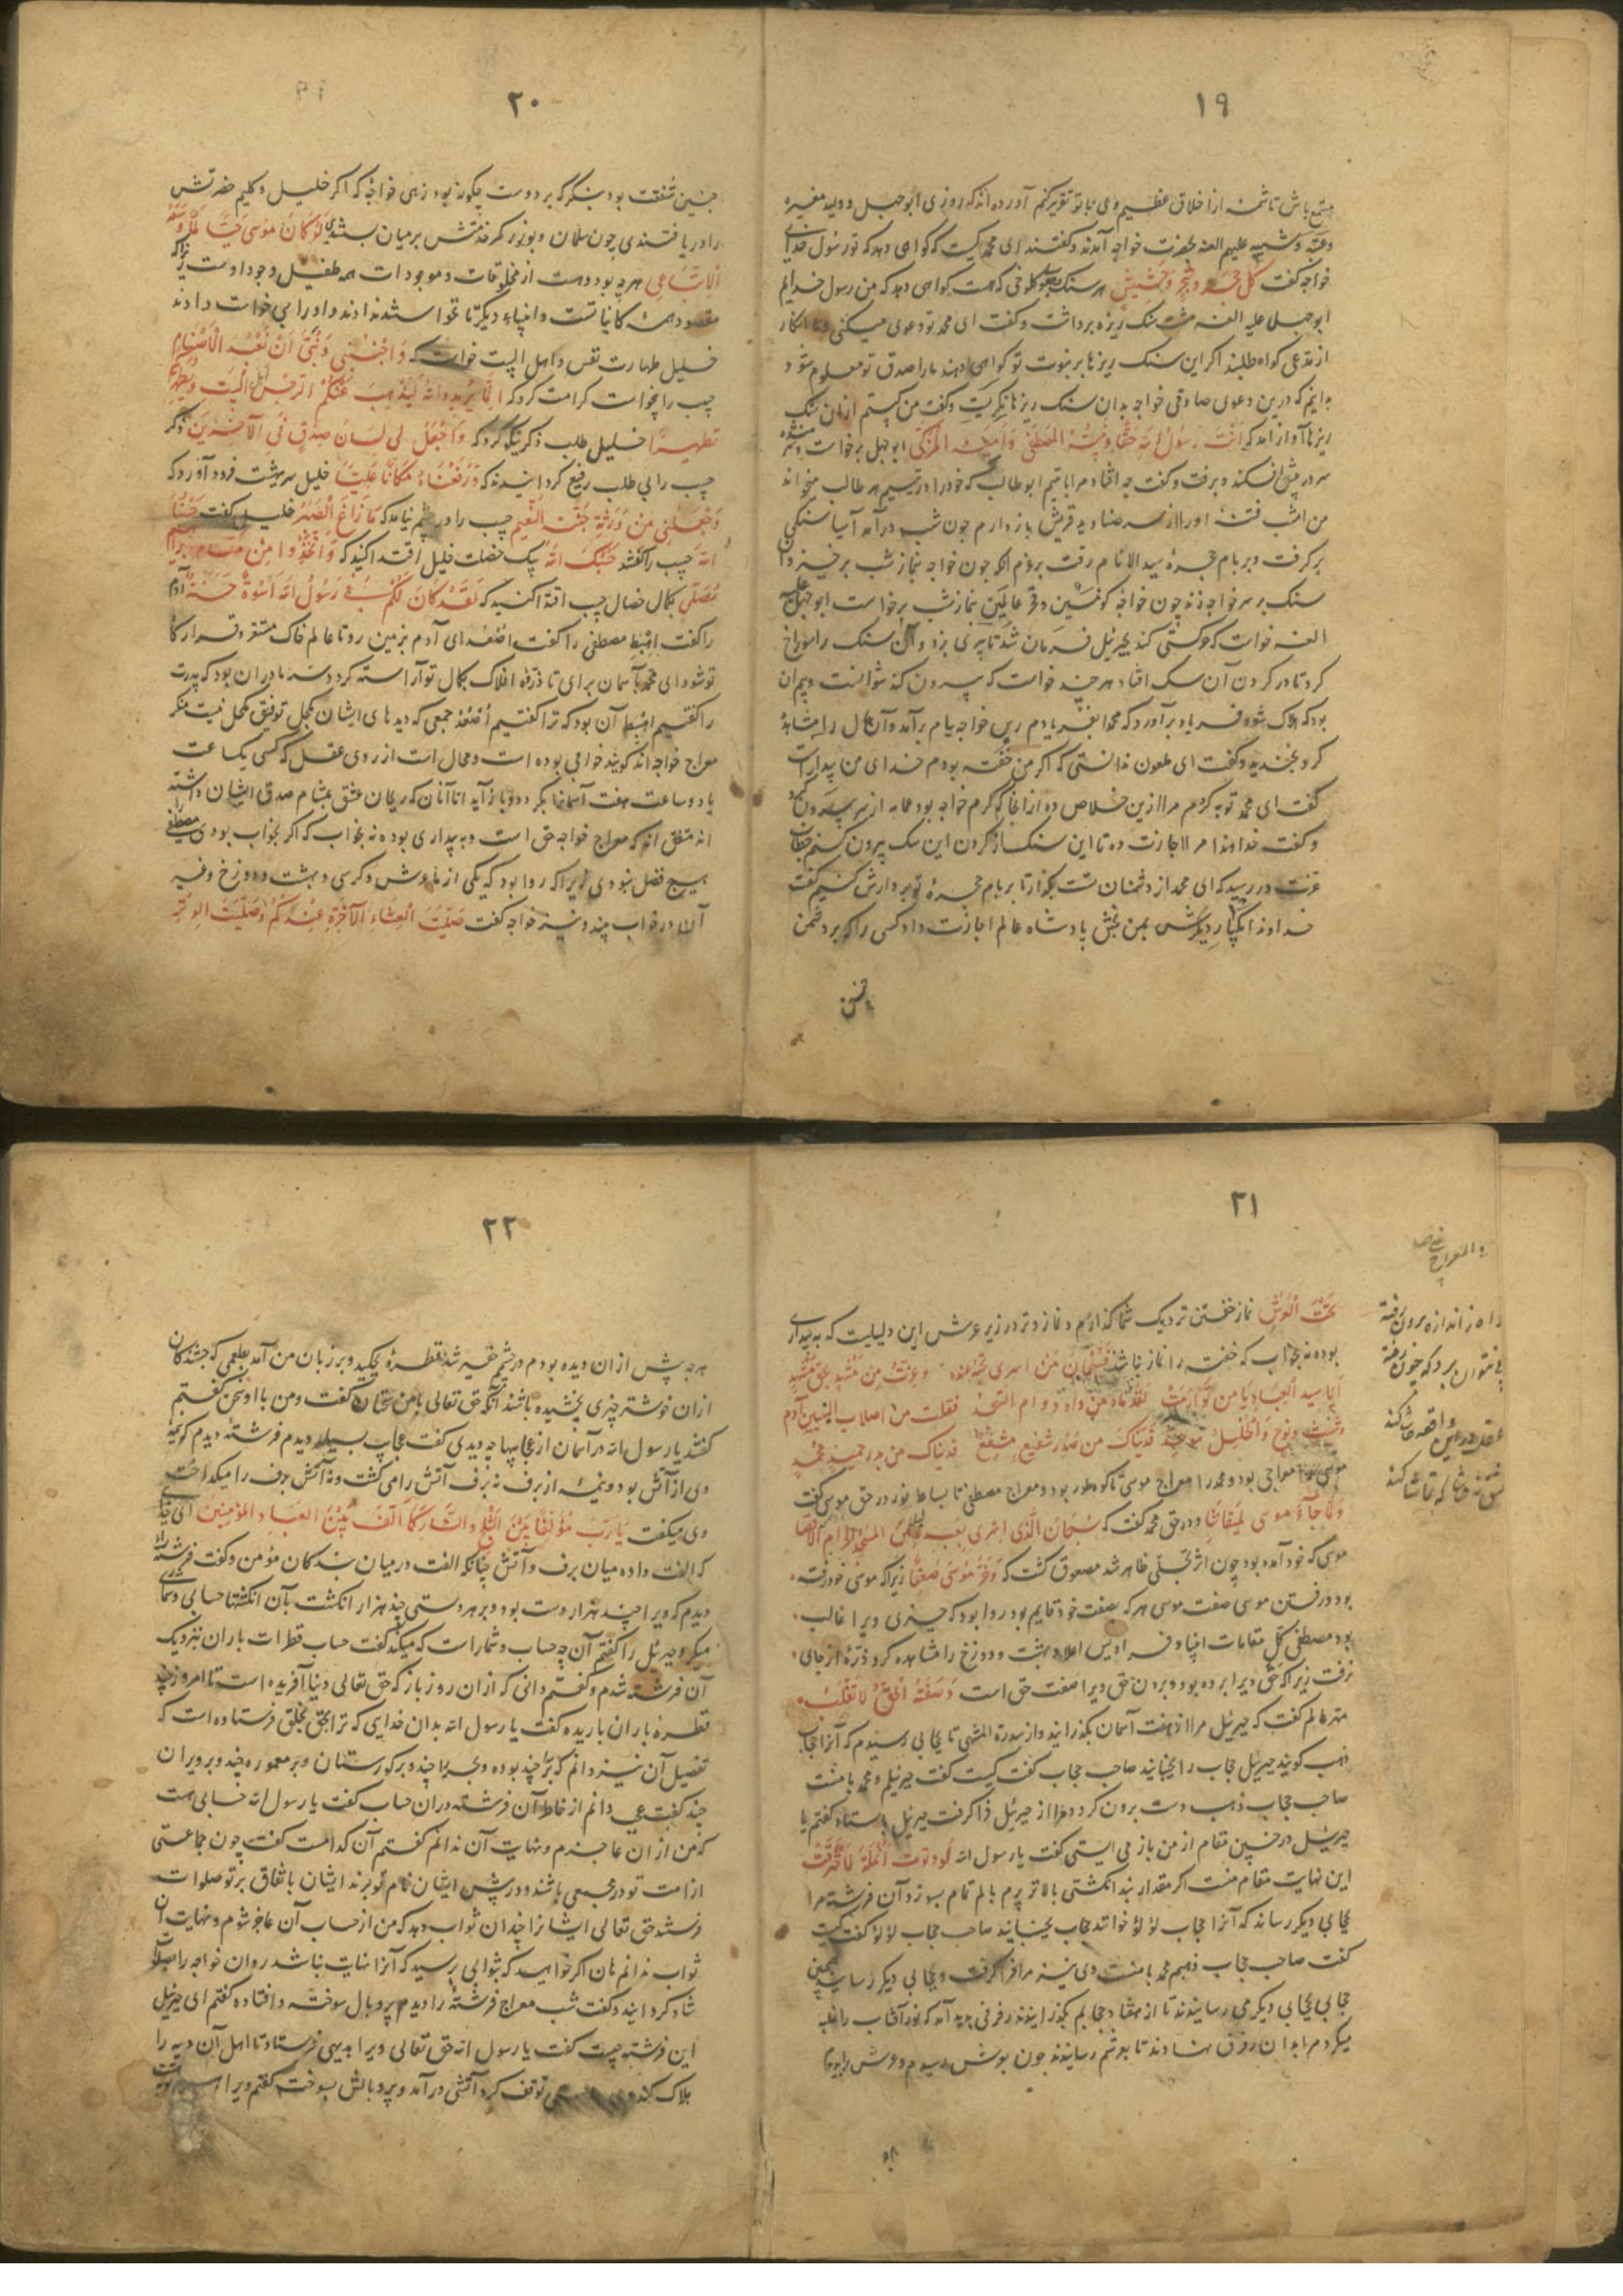 ۱۹
مستمع باش تا شمه از اخلاق عظیم وی با تو تقریر کنم آورده‌اند که روزی ابوجهل و ولید مغیره
و عتبه و شیبه علیهم اللعنه بحضرت خواجه آمدند و گفتند ای محمد کیست که گواهی دهد که تو رسول خدای
خواجه گفت کل حجر و شجر و حشیش هر سنگ کلوخی که هست گواهی دهد که من رسول خدایم
ابوجهل علیه اللعنه مشت سنگ ریزه برداشت و گفت ای محمد تو دعوی میکنی و ما انکار
از مدعی گواه طلبند اگر این سنگ ریزها بر نبوت تو گواهی دهند ما را صدق تو معلوم شود
بدانیم که درین دعوی صادقی خواجه بدان سنگ ریزها نگریست و گفت من کیستم از آن سنگ
ریزها آواز آمد که انت رسول الله حقا و نبیه المصطفی و امینه المزکی ابوجهل برخاست
سر در پیش افکند و برفت و گفت چه افتاد مرا با یتیم ابوطالب که خود را در یتیم هر طالب میخواند
من امشب فتنه او را از سر صنادید قریش باز دارم چون شب درآمد آسیا سنگی
برگرفت و بر بام حجره سید الانام رفت بر عزم آنکه چون خواجه بنماز شب برخیزد آن
سنگ بر سر خواجه زند چون خواجه کونین و فخر عالمین بنماز شب برخاست ابوجهل علیه
اللعنه خواست که حرکتی کند جبرئیل فرمان شد تا پری بزد و آن سنگ را سوراخ
کرد تا در گردن آن سگ افتاد هر چند خواست که بیرون کند نتوانست و بیم آن
بود که هلاک شود فریاد برآورد که محمدا بفریادم رس خواجه ببام برآمد و آن حال را مشاهده
کرد بخندید و گفت ای ملعون ندانستی که اگر من خفته بودم خدای من بیدار است
گفت ای محمد توبه کردم مرا ازین خلاص ده از آنجا که کرم خواجه بود عمامه از سر بیرون کرد
و گفت خداوندا مرا اجازت ده تا این سنگ از گردن این سگ بیرون کنم خطاب
عزت در رسید که ای محمد از دشمنان تست بگذار تا بر بام حجره تو بر دارش کنیم گفت
خداوندا یکبار دیگرش بمن بخش پادشاه عالم اجازت داد کسی را که بر دشمن
۲۰
چنین شفقت بود بنگر که بر دوست چگونه بود زهی خواجه که اگر خلیل و کلیم حضرتش
را دریافتندی چون سلمان و بوذر کمر خدمتش بر میان بستندی لو کان موسی حیا لما وسعه
الا اتباعی هر چه بود و هست از مخلوقات و موجودات همه طفیل وجود اوست زیرا که
مقصود همه کاینات تست و انبیاء دیگر تا نخواستند ندادند و او را بی خواست دادند
خلیل طهارت نفس و اهل البیت خواست که و اجنبنی و بنی ان نعبد الاصنام
حبیب را بیخواست کرامت کرد که انما یرید الله لیذهب عنکم الرجس اهل البیت و یطهرکم
تطهیرا خلیل طلب ذکر نیکو کرد که و اجعل لی لسان صدق فی الآخرین ذکر
حبیب را بی طلب رفیع گردانیدند که و رفعناه مکانا علیا خلیل سر ببهشت فرود آورد که
و اجعلنی من ورثة جنة النعیم حبیب را در چشم نیامد که ما زاغ البصر خلیل گفت حسبنا
الله حبیب را گفتند حسبک الله بیک خصلت خلیل اقتدا کنید که و اتخذوا من مقام ابراهیم
مصلی بکمال خصال حبیب اقتدا کنید که لقد کان لکم فی رسول الله اسوة حسنة آدم
را گفت اهبط مصطفی را گفت اصعد ای آدم بزمین رو تا عالم خاک مستقر و قرارگاه
تو شود ای محمد بآسمان برآی تا ذروه افلاک بکمال تو آراسته گردد سر ما در آن بود که پدرت
را گفتیم اهبط آن بود که ترا گفتیم اصعد جمعی که دیدهای ایشان بکحل توفیق مکحل نیست منکر
معراج خواجه‌اند گویند خوابی بوده است و محال است از روی عقل که کسی بیکساعت
یا دو ساعت هفت آسمانها بگردد و باز آید اما آنان که ریحان عشق بمشام صدق ایشان داشته
اند متفق‌اند که معراج خواجه حق است و به بیداری بوده نه بخواب که اگر بخواب بودی مصطفی را
هیچ فضل نبودی زیرا که روا بود که یکی از ما عرش و کرسی و بهشت و دوزخ و غیر
آن در خواب بیند و نیز خواجه گفت صلیت العشاء الآخرة عندکم و صلیت الوتر
۲۱
تحت العرش نماز خفتن نزدیک شما گذاردم و نماز وتر در زیر عرش این دلیلیست که به بیداری
بوده نه بخواب که خفته را نماز نباشد فسبحان من اسری بعبده
موسی را معراجی بود و محمد را معراج موسی تا کوه طور بود و معراج مصطفی تا بساط نور در حق موسی گفت
و لما جاء موسی لمیقاتنا و در حق محمد گفت که سبحان الذی اسری بعبده لیلا من المسجد الحرام الی الاقصا
موسی که خود آمده بود چون اثر تجلی ظاهر شد مصعوق گشت که و خر موسی صعقا زیرا که موسی خود رفته
بود در رفتن موسی صفت موسی هر که بصفت خود قایم بود روا بود که چیزی ویرا غالب
بود مصطفی کل مقامات انبیا و فرادیس اعلا و بهشت و دوزخ را مشاهده کرد ذره از جای
نرفت زیرا که حق ویرا برده بود و بردن حق ویرا صفت حق است و صفة الحق لا تغلب
مهتر عالم گفت که جبرئیل مرا از هفت آسمان بگذرانید و از سدرة المنتهی تا بحجابی رسیدم که آنرا حجاب
ذهب گویند جبرئیل حجاب را بجنبانید صاحب حجاب گفت کیست گفت جبرئیلم و محمد با منست
صاحب حجاب ذهب دست برون کرد و مرا از جبرئیل فرا گرفت جبرئیل باستاد گفتم یا
جبرئیل در چنین مقام از من باز می ایستی گفت یا رسول الله لو دنوت انملة لاحترقت
این نهایت مقام منست اگر مقدار بند انگشتی بالاتر پرم بالم تمام بسوزد آن فرشته مرا
بحجابی دیگر رساند که آنرا حجاب لؤلؤ خوانند حجاب بجنبانید صاحب حجاب لؤلؤ گفت کیست
گفت صاحب حجاب ذهبم محمد با منست وی نیز مرا فرا گرفت و بحجابی دیگر رسانید همچنین
حجابی بحجابی دیگر می رسانیدند تا از هفتاد حجابم بگذرانیدند رفرفی پدید آمد که نور آفتاب را غلبه
میکرد مرا بدان رفرف نشاندند تا بعرشم رسانیدند چون بعرش رسیدم
راه ز اندازه برون رفته
پی نتوان برد که چون رفته
عقل درین واقعه حاشا کند
۲۲
هر چه پیش از آن دیده بودم در چشمم حقیر شد قطره بچکید و بر زبان من آمد بطعمی که چشندگان
از آن خوشتر چیزی نچشیده باشند آنگه حق تعالی با من سخنان گفت و من با او سخن گفتم
گفتند یا رسول الله در آسمان از عجایبها چه دیدی گفت عجایب بسیار دیدم فرشته دیدم که نیمه
وی از آتش بود و نیمه از برف نه برف آتش را می کشت و نه آتش برف را میگداخت
وی میگفت یا رب مؤلفا بین الثلج و النار کما الف بین العباد المؤمنین
که الفت داده میان برف و آتش چنانکه الفت در میان بندگان مؤمن و گفت فرشته
دیدم که ویرا چند هزار دست بود و بر هر دستی چند هزار انگشت بآن انگشتها حسابی و شماری
میکرد جبرئیل را گفتم آن چه حساب و شمار است که میکند گفت حساب قطرات باران نزدیک
آن فرشته شدم و گفتم دانی که از آن روز باز که حق تعالی دنیا آفریده است تا امروز چند
قطره باران باریده گفت یا رسول الله بدان خدایی که ترا بحق بخلق فرستاده است که
تفصیل آن نیز دانم که ببر چند بوده و ببحر چند و بر گورستان و بر معموره چند و بر ویران
چند گفت دانم از خاطر آن فرشته در آن حساب گفت یا رسول الله حسابی هست
که من از آن عاجزم و نهایت آن ندانم گفتم آن کدامست گفت چون جماعتی
از امت تو در مجمعی باشند و در پیش ایشان نام تو برند ایشان باتفاق بر تو صلوات
فرستند حق تعالی ایشانرا چندان ثواب دهد که من از حساب آن عاجز شوم و نهایت آن
ثواب ندانم هان اگر خواهید که بثوابی برسید که آنرا نهایت نباشد روان خواجه را بصلوات
شاد گردانید و گفت شب معراج فرشته را دیدم پر و بال سوخته و افتاده گفتم ای جبرئیل
این فرشته چیست گفت یا رسول الله حق تعالی ویرا بدیهی فرستاد تا اهل آن دیه را
هلاک کند توقف کرد آتشی درآمد و پر و بالش بسوخت گفتم ویرا